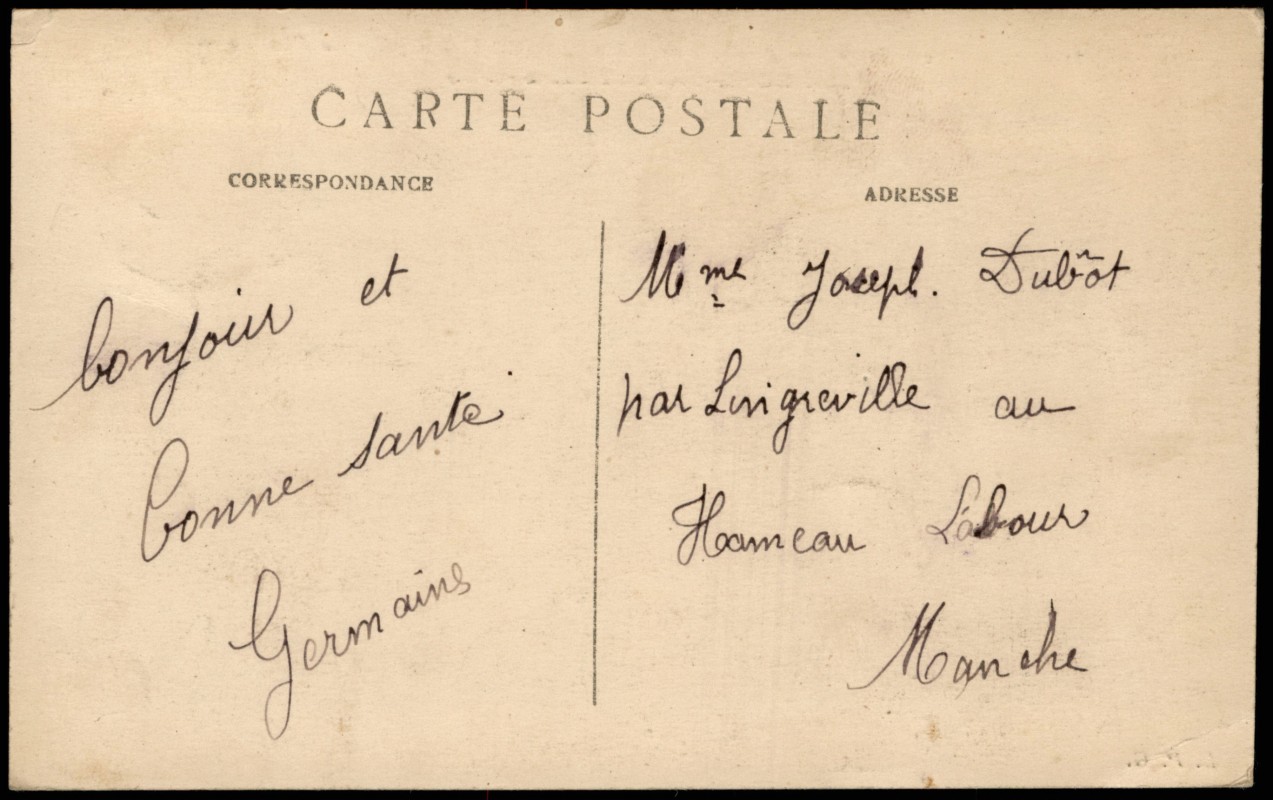 CARTE POSTALE
CORRESPONDANCE
bonjour et
bonne santé
Germaine
ADRESSE
Mme Joseph. Dubôt
par Lingreville au
Hameau Labour
Manche